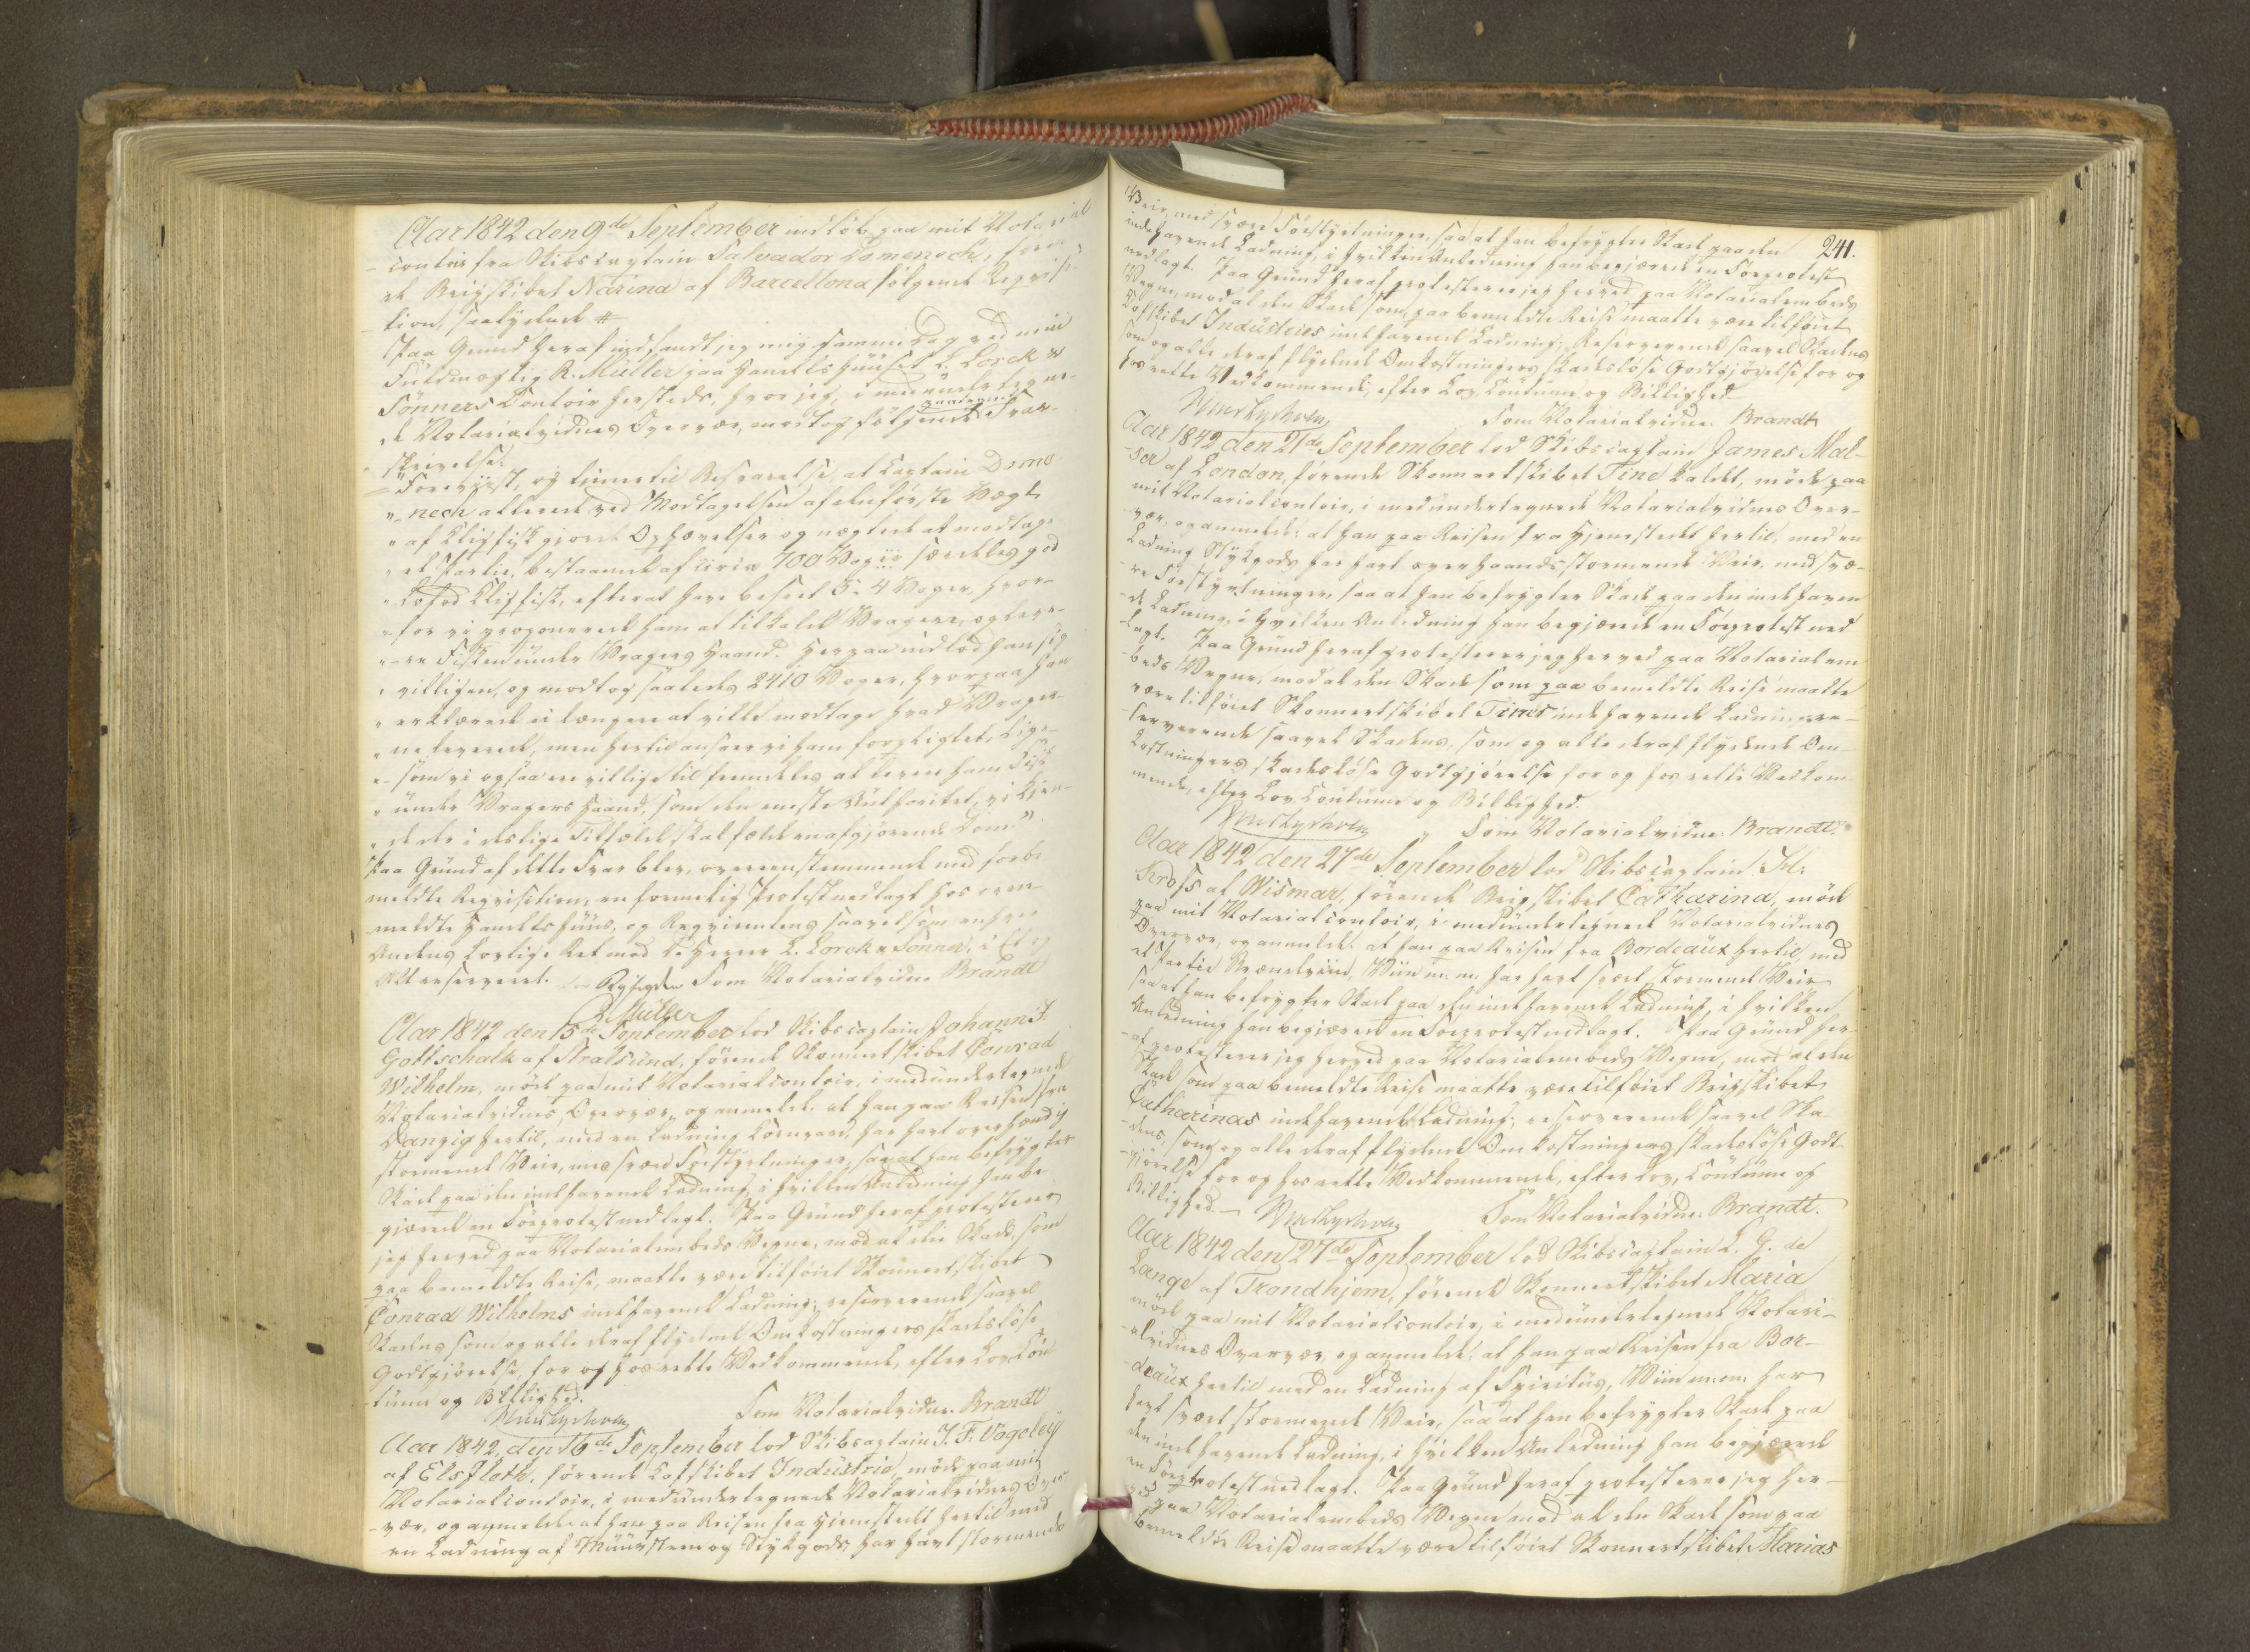 Aar 1842 den 9de September indløb paa mit Notarial
contoir fra Skibscaptain Salvador Domenech, føren
de Brigskibet Narina af Barcellona følgende Reqvisi
tion, saalydende #
Paa Grund heraf indfandt jeg mig samme Dag ved min
Fuldmægtig R. Müller paa Handelshuuset L. Lorck &
Sönners Contoir hersteds, hvor jeg, i medundertegne-
de Notarialvidnes Overvær, modtog følgende Svar-
skrivelse:
"Forevist, og tiener til Besvarelse, at Captain Dome
"-nech allerede ved Modtagelsen af den første Vægt
" af Klipfisk gjorde Ophævelser og nægtede at modtage
" et Partie, bestaaende af circa 700 Voger særdeles god
" Lofod Klipfisk, efterat have beseet 3-4 Voger, hvor-
"-for vi proponerede ham at tilkalde Vragere, og leve-
"-re Fisken under Vragers Haand. Herpaa indlod han sig
" villigen, og modtog saaledes 2410 Voger, hvorpaa han
" erklærede ei længere at ville modtage hvad Vrager-
" ne leverede, men hertil ansaae vi ham forpligtet, lige-
"-som vi ogsaa ere villige til fremdeles at levere ham Fisk
" under Vragers Haand, som den eneste Authoritet, vi kjen-
" de der i deslige Tilfælde skal fælde en afgjørende Dom"
Paa Grund af dette Svar blev, overeensstemmende med forbe
meldte Reqvisition, en formelig Protest nedlagt hos oven-
meldte Handelshuus, og Reqvirentens saavelsom enhver
Andens lovlige Ret mod D'Herrer L. Lorck & Sönner, i Et og
Alt reserveret. Som Notarialvidne Brandt
Müller
Aar 1842 den 15de September lod Skibscaptain Johann F.
Gottschalk af Stralsund, førende Skonnertskibet Conrad
Wilhelm, møde paa mit Notarialcontoir, i medundertegnede
Notarialvidnes Overvær, og anmelde: at han paa Reisen fra
Danzig hertil, med en Ladning Kornvare, har havt overhændig
stormende Veir, med svære Søestyrtninger, saa at han befrygter
Skade paa den indehavende Ladning, i hvilken Anledning han be-
gjærede en Søeprotest nedlagt. Paa Grund heraf protesterer
jeg herved paa Notarialembeds Vegne, mod al den Skade, som
paa bemeldte Reise, maatte være tilføiet Skonnertskibet
Conrad Wilhelms indehavende Ladning; reserverende saavel
Skadens som og alle deraf flydende Omkostningers skadesløse
Godtgjørelse, for og hos rette Vedkommende, efter Lov, Coü
tume og Billighed.
Som Notarialvidne Brandt
Aar 1842, den 16de September lod Skibscaptain J. F. Vageley
af Elsfleth, førende Kofskibet Industrie, møde paa mit
Notarialcontoir, i medundertegnede Notarialvidnes Over
-vær, og anmelde: at han paa Reisen fra Hjemstedet hertil med
en Ladning af Muursteen og Stykgods har havt stormende
241.
Veir, med svære Søestyrtninger, saa at han befrygter Skade paa den
indehavende Ladning, i hvilken Anledning han begjærede en Søeprotest
nedlagt. Paa Grund heraf protesterer jeg herved paa Notarialembeds
Vegne, mod al den Skade som paa bemeldte Reise maatte være tilføiet
Kofskibet Industries indehavende Ladning; Reserverende saavel Skadens
som og alle deraf flydende Omkostningers skadesløse Godtgjørelse for og
hos rette Vedkommende, efter Lov, Coutume og Billighed.
Som Notarialvidne Brandt
Aar 1842 den 21de September lod Skibscaptain James Mal-
-sor af London, førende Skonnertskibet Tine kaldet, møde paa
mit Notarialcontoir, i medundertegnede Notarialvidnes Over-
-vær, og anmelde: at han paa Reisen fra Hjemstedet hertil, med en
Ladning Stykgods har havt overhaands stormende Veir, med svæ-
-re Søestyrtninger, saa at han befrygter Skade paa den indehaven
-de Ladning, i hvilken Anledning han begjærede en Søeprotest ned
lagt. Paa Grund heraf protesterer jeg herved paa Notarialem
beds Vegne, mod al den Skade som paa bemeldte Reise maatte
være tilføiet Skonnertskibet Tines indehavende Ladning; re-
serverende saavel Skadens, som og alle deraf flydende Om
kostningers skadesløse Godtgjørelse for og hos rette Vedkom-
mende, efter Lov, Coutume og Billighed.
Som Notarialvidne Brandt.
Aar 1842 den 27de September lod Skibscaptain
Kross af Wismar, førende Brigskibet Catharina, møde
paa mit Notarialcontoir, i medundertegnede Notarialvidnes
Overvær, og anmelde: at han paa Reisen fra Bordeaux hertil, med
et Partie Brændeviin, Viin m. m. har havt svært stormende Veir
saa at han befrygter Skade paa den indehavende Ladning, i hvilken
Anledning han begjærede en Søeprotest nedlagt. Paa Grund her-
af protesterer jeg herved paa Notarialembeds Vegne, mod al den
Skade som paa bemeldte Reise maatte være tilføiet Brigskibet
Catharinas indehavende Ladning; reserverende saavel Ska-
dens, som og alle deraf flydende Omkostningers skadesløse Godt-
gjørelse for og hos rette Vedkommende, efter Lov, Coutume og
Billighed.
Som Notarialvidne: Brandt.
Aar 1842 den 27de September lod Skibscaptain L. G. de
Lange af Trondhjem, førende Skonnertskibet Maria
møde paa mit Notarialcontoir, i medundertegnede Notari-
alvidnes Overvær, og anmelde: at han paa Reisen fra Bor-
deaux hertil med en Ladning af Spiritus, Viin m. m. har
havt svært stormende Veir, saa at han befrygter Skade paa
den indehavende Ladning, i hvilken Anledning han begjærede
en Søeprotest nedlagt. Paa Grund heraf protesterer jeg her-
ved paa Notarialembeds Vegne mod al den Skade som paa
bemeldte Reise maatte være tilføiet Skonnertskibet Marias